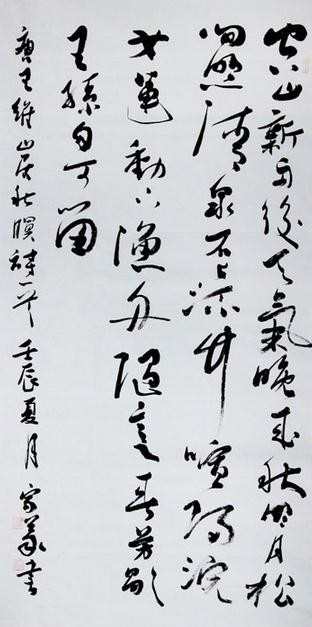 空山新雨後天氣晚來秋明月松
間照清泉石上流竹喧歸浣
女蓮動下漁舟隨意春芳歇
王孫自可留
唐王維山居秋暝詩一首 壬辰夏月 家書